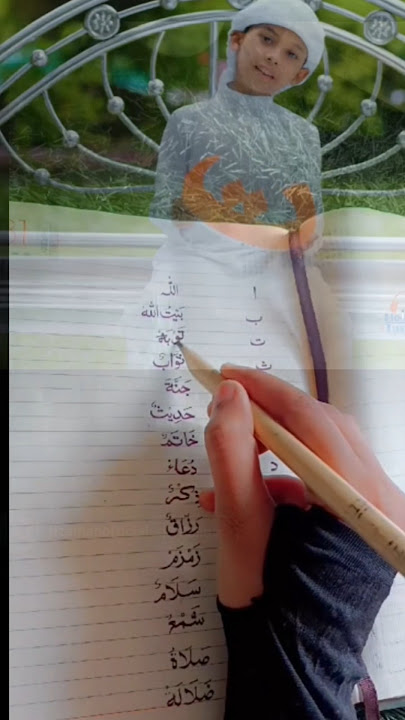 ا الله
ب بَيْتُ الله
ت تَوْبَة
ث ثَوَاب
جَنَّة
حَدِيْث
خَاتَمْ
د دُعَاء
ذِكْر
رَزَّاقْ
زَمْزَمْ
سَلَامْ
شَمْعْ
صَلَاةْ
ضَلَالَهْ